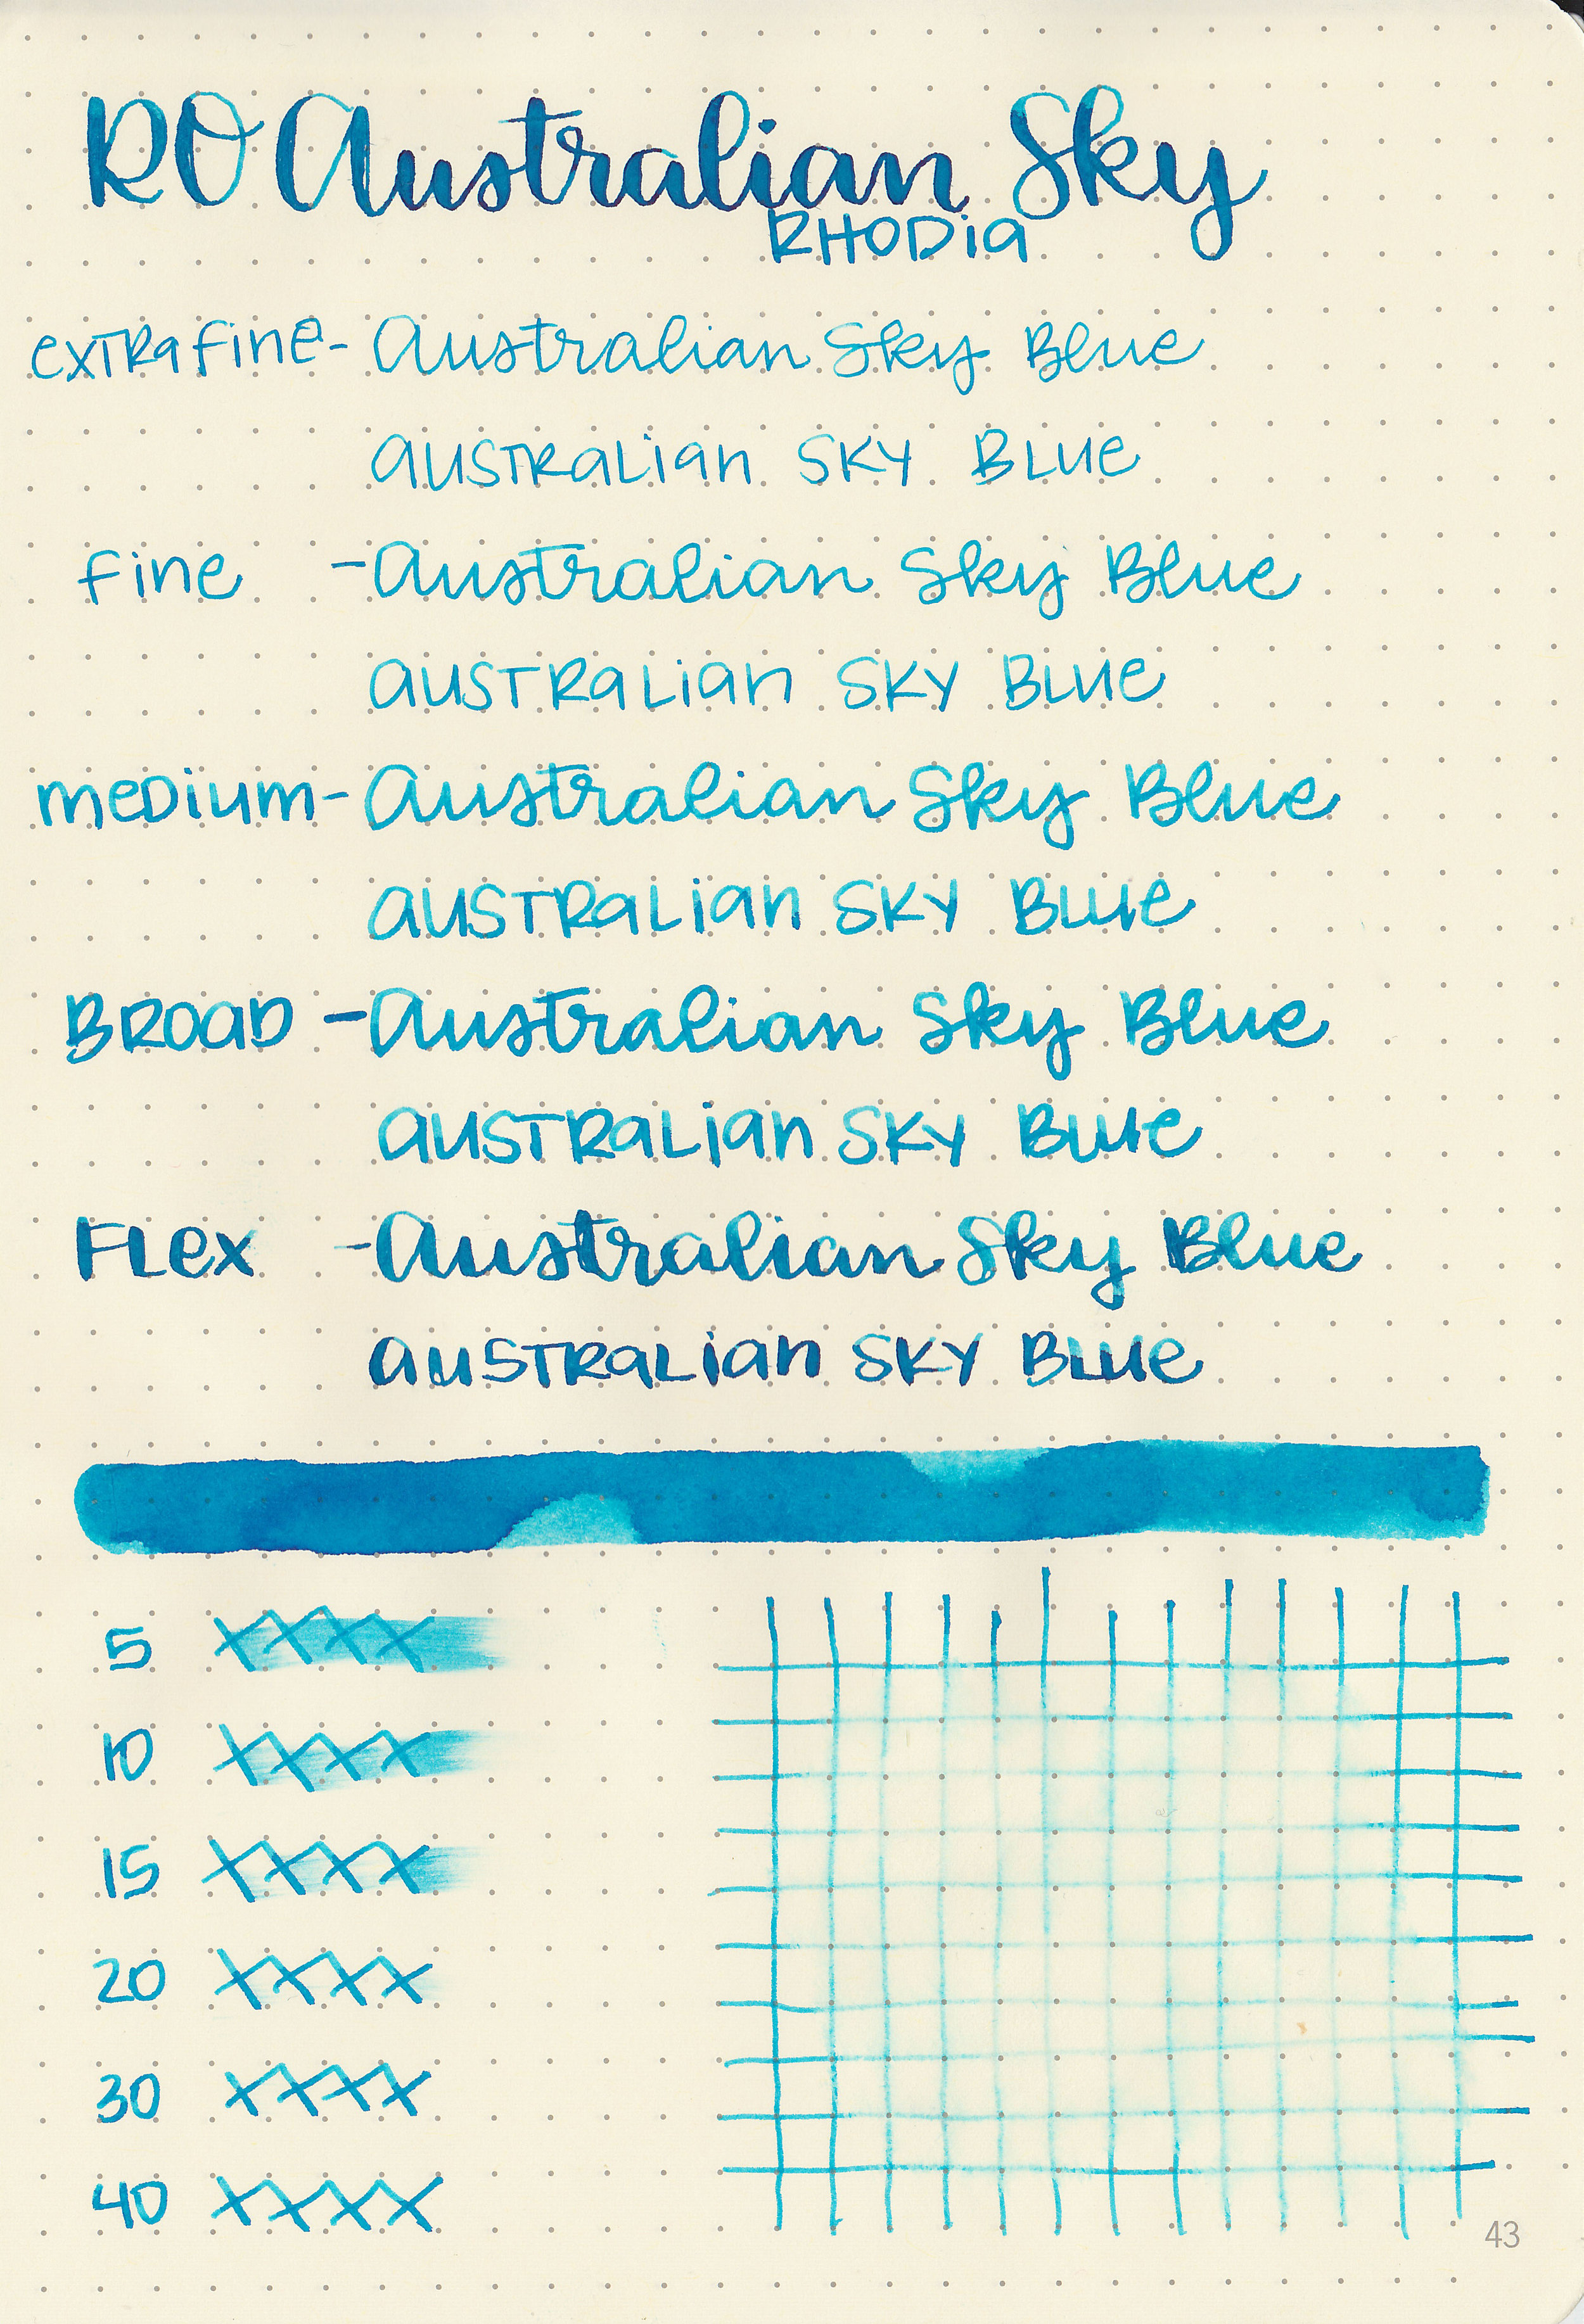 RO Australian Sky
RHODia
extRa fine- Australian Sky Blue
aUSTRaLian SKY BLUe
fine - Australian Sky Blue
aUSTRaLian SKY BLUe
meDium- Australian Sky Blue
aUSTRaLian SKY BLUe
BROaD - Australian Sky Blue
aUSTRaLian SKY BLUe
FLex - Australian Sky Blue
aUSTRaLian SKY BLUe
5 XXXX
10 XXXX
15 XXXX
20 XXXX
30 XXXX
40 XXXX
43